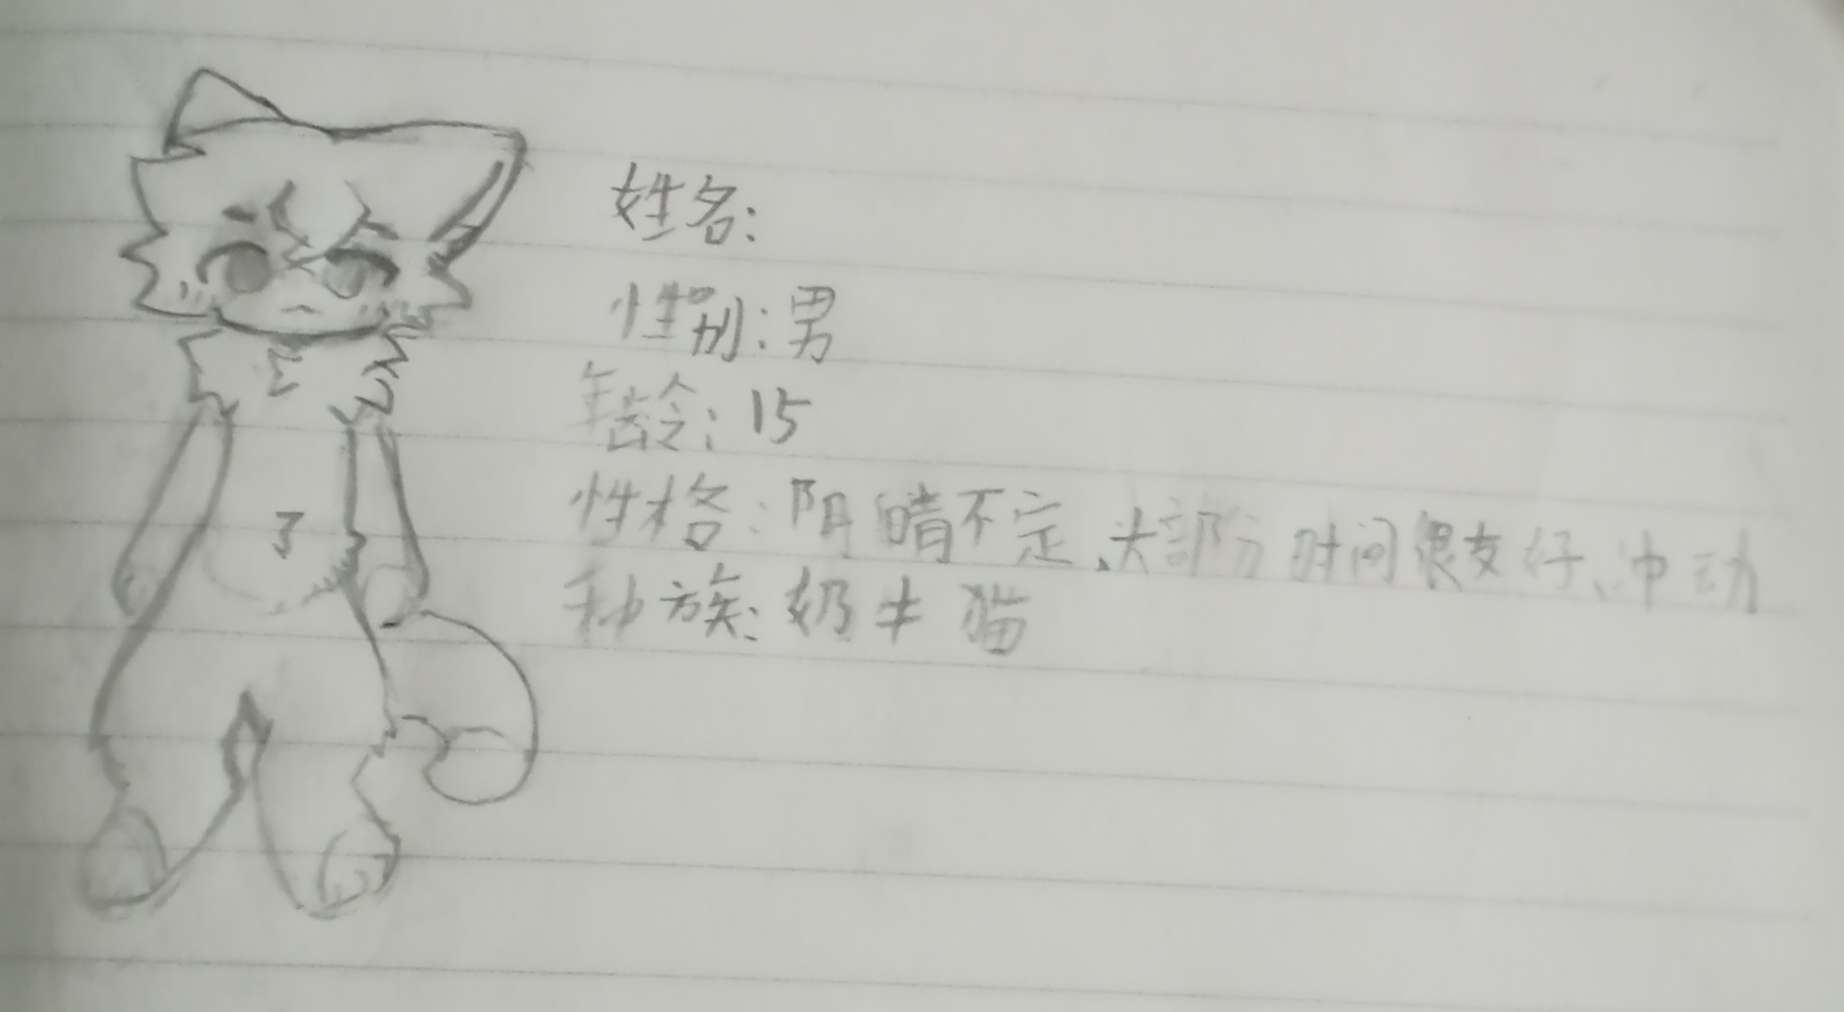 姓名:
性别:男
年龄:15
性格:阴晴不定、大部分时间很友好、冲动
种族:奶牛猫